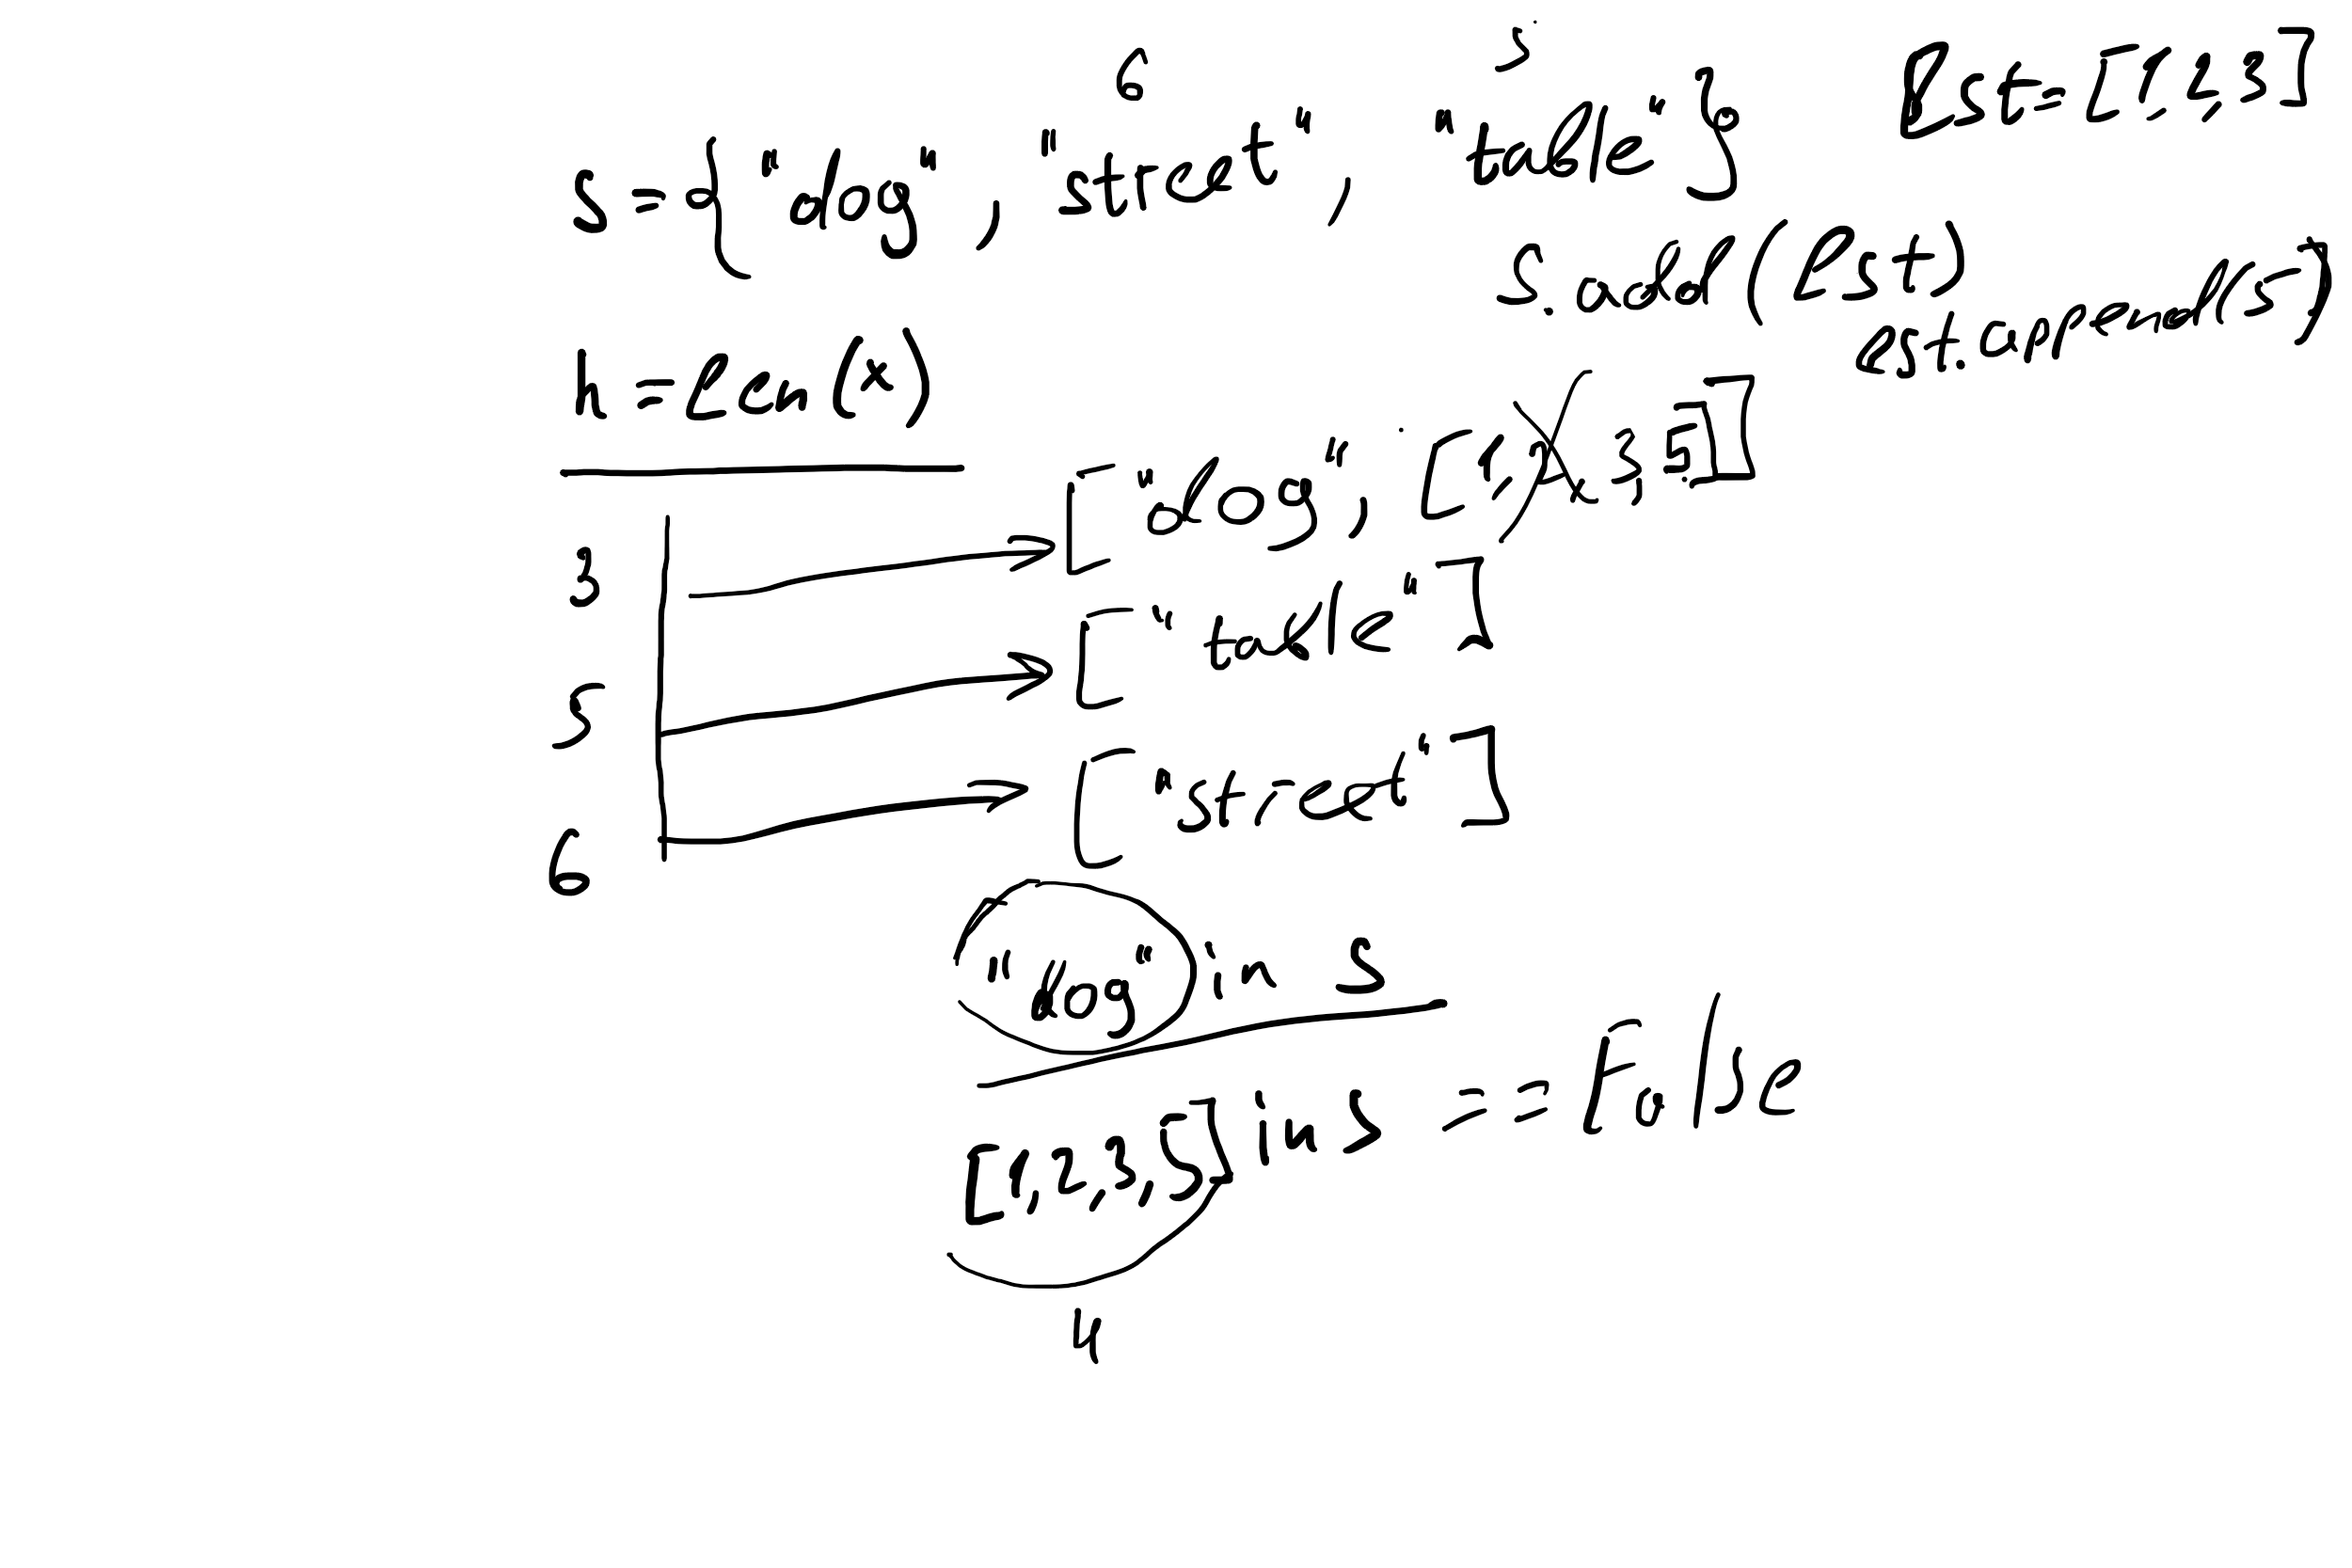 6 5
s = { "dog", "street", "table" }
lst = [1, 2, 3]
s.add(lst)
lst.append(5)
h = len(x)
3 ["dog", [1, 2, 3, 5]]
5 ["table"]
6 ["street"]
"dog" in s
[1, 2, 3, 5] in s == False
4